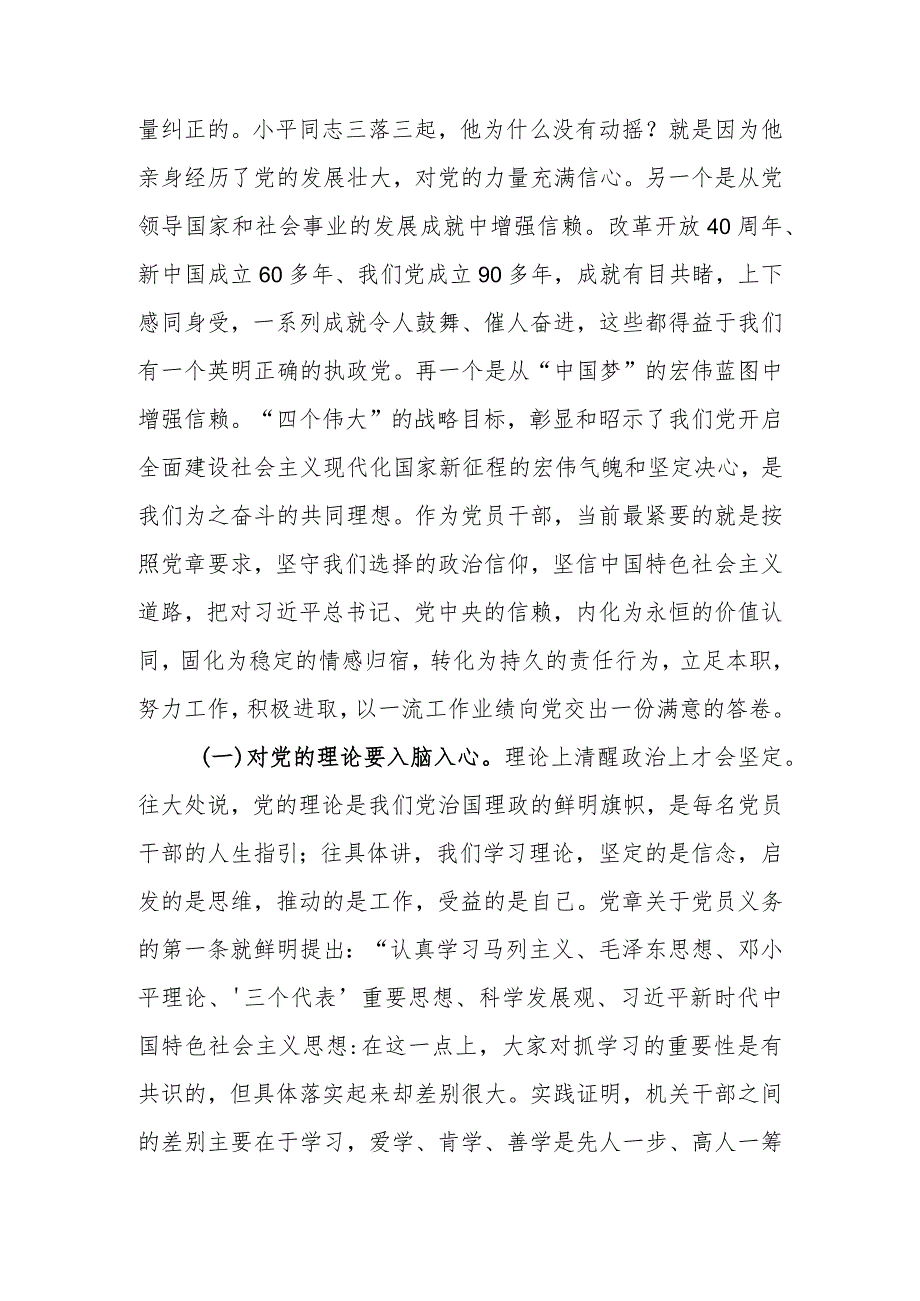 量纠正的。小平同志三落三起，他为什么没有动摇？就是因为他
亲身经历了党的发展壮大，对党的力量充满信心。另一个是从党
领导国家和社会事业的发展成就中增强信赖。改革开放 40 周年、
新中国成立 60 多年、我们党成立 90 多年，成就有目共睹，上下
感同身受，一系列成就令人鼓舞、催人奋进，这些都得益于我们
有一个英明正确的执政党。再一个是从“中国梦”的宏伟蓝图中
增强信赖。“四个伟大”的战略目标，彰显和昭示了我们党开启
全面建设社会主义现代化国家新征程的宏伟气魄和坚定决心，是
我们为之奋斗的共同理想。作为党员干部，当前最紧要的就是按
照党章要求，坚守我们选择的政治信仰，坚信中国特色社会主义
道路，把对习近平总书记、党中央的信赖，内化为永恒的价值认
同，固化为稳定的情感归宿，转化为持久的责任行为，立足本职，
努力工作，积极进取，以一流工作业绩向党交出一份满意的答卷。
(一)对党的理论要入脑入心。理论上清醒政治上才会坚定。
往大处说，党的理论是我们党治国理政的鲜明旗帜，是每名党员
干部的人生指引；往具体讲，我们学习理论，坚定的是信念，启
发的是思维，推动的是工作，受益的是自己。党章关于党员义务
的第一条就鲜明提出：“认真学习马列主义、毛泽东思想、邓小
平理论、'三个代表’重要思想、科学发展观、习近平新时代中
国特色社会主义思想:在这一点上，大家对抓学习的重要性是有
共识的，但具体落实起来却差别很大。实践证明，机关干部之间
的差别主要在于学习，爱学、肯学、善学是先人一步、高人一筹